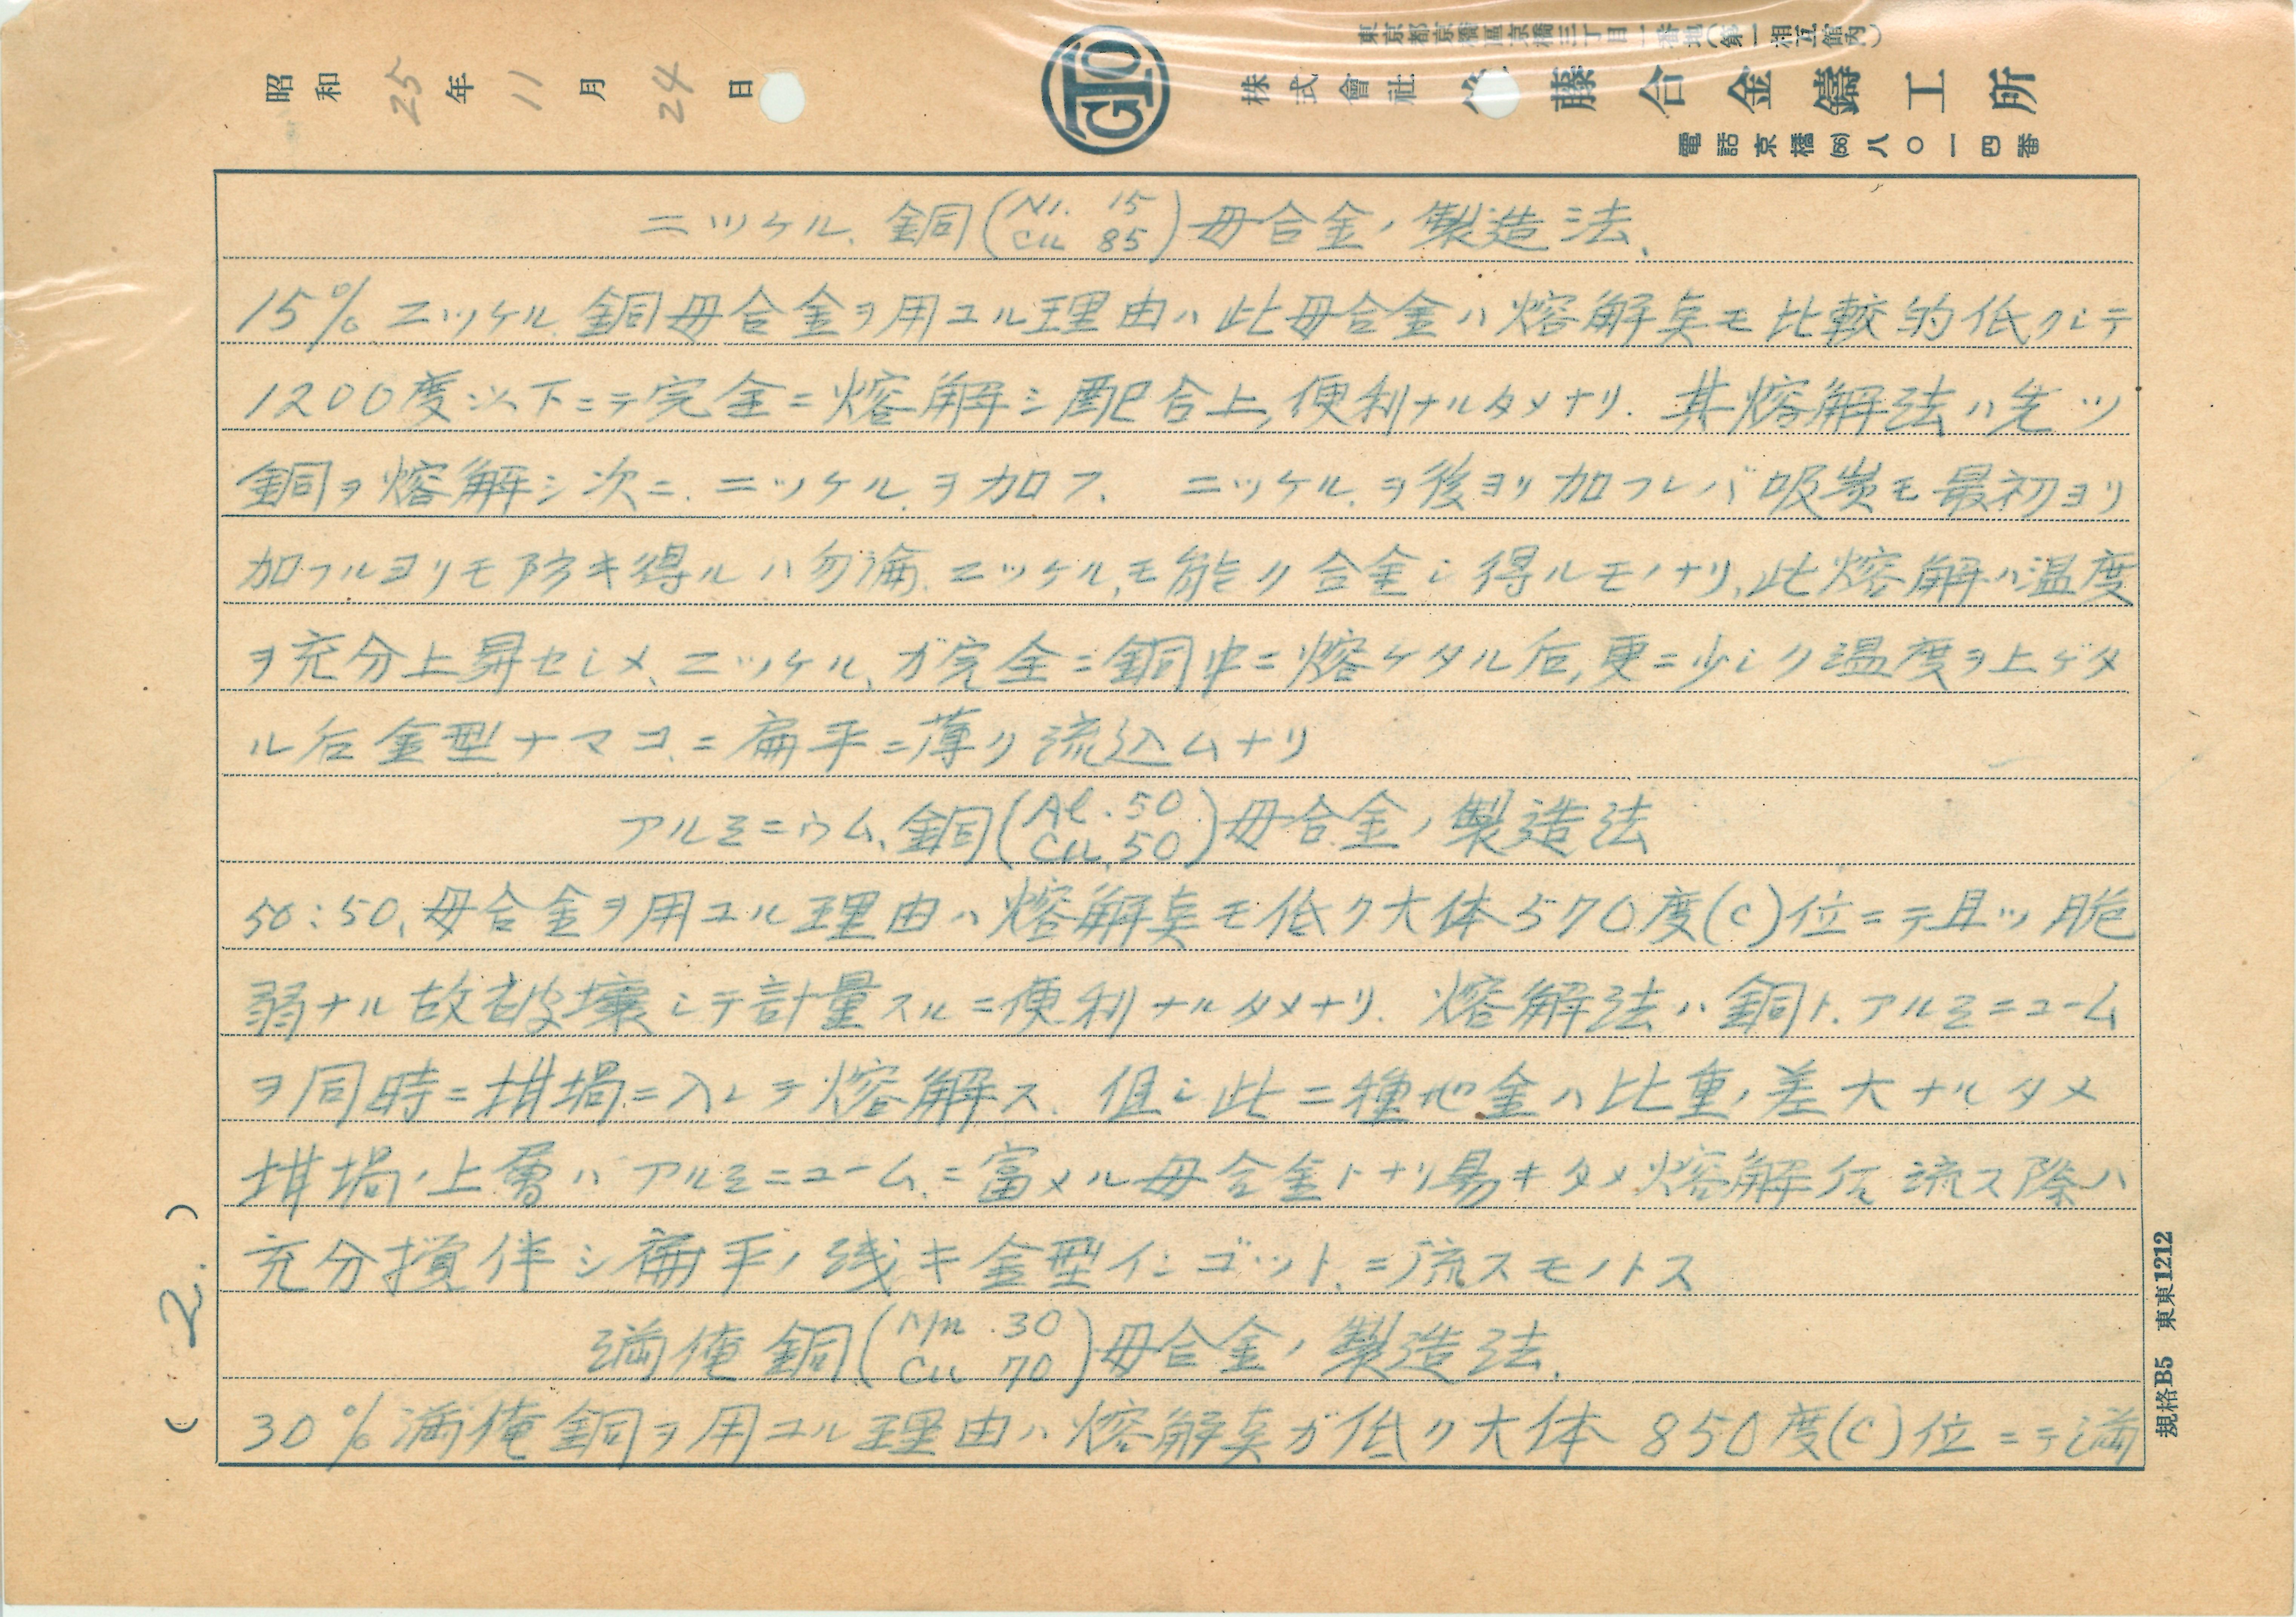 東京都京橋區京橋三丁目一番地(第一相互館內)
昭和25年11月24日
GTO
株式會社 藤合金鑄工所
電話京橋(56)八〇一四番
ニツケル、銅(Ni. 15 Cu 85)母合金ノ製造法、
15% ニツケル銅母合金ヲ用ユル理由ハ此母合金ハ熔解点モ比較的低クシテ
1200度以下ニテ完全ニ熔解シ配合上、便利ナルタメナリ. 其熔解法ハ先ツ
銅ヲ熔解シ次ニ、ニツケル、ヲ加フ、 ニツケル、ヲ後ヨリ加フレバ吸炭モ最初ヨリ
加フルヨリモ防キ得ルハ勿論、ニツケル、モ能ク合金シ得ルモノナリ、此熔解ハ温度
ヲ充分上昇セシメ、ニツケル、ガ完全ニ銅中ニ熔ケタル后、更ニ少シク温度ヲ上ゲタ
ル后金型ナマコ、ニ扁平ニ薄ク流込ムナリ
アルミニウム、銅(Al. 50 Cu. 50)母合金ノ製造法
50:50、母合金ヲ用ユル理由ハ熔解点モ低ク大体570度(C)位ニテ且ツ脆
弱ナル故破壊シテ計量スルニ便利ナルタメナリ. 熔解法ハ銅ト、アルミニューム
ヲ同時ニ坩堝ニ入レテ熔解ス. 但シ此二種地金ハ比重ノ差大ナルタメ
坩堝ノ上層ハアルミニューム、ニ富メル母合金トナリ易キタメ熔解后流ス際ハ
充分攪伴シ扁平ノ浅キ金型インゴット、ニ流スモノトス
満俺銅(Mn. 30 Cu 70)母合金ノ製造法.
30% 満俺銅ヲ用ユル理由ハ熔解点ガ低ク大体 850度(C)位ニテ満
(2.)
規格B5 東東1212